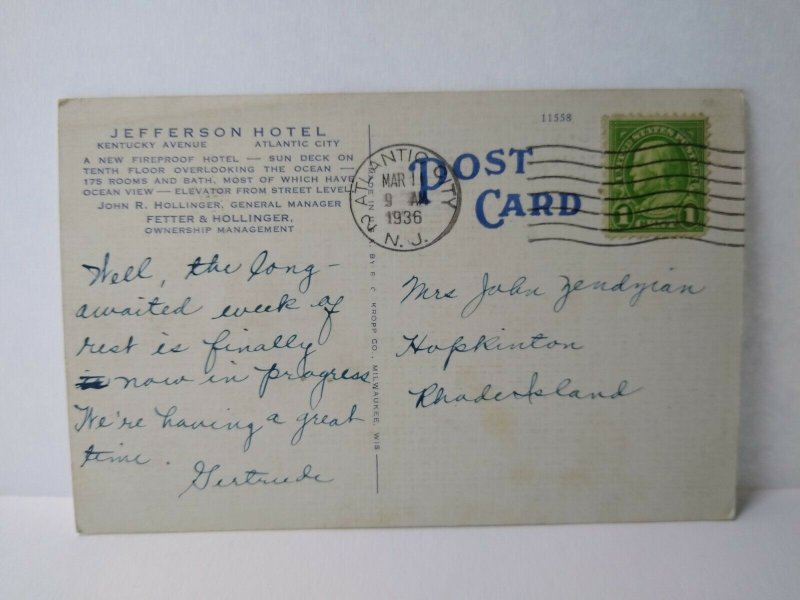 JEFFERSON HOTEL
KENTUCKY AVENUE ATLANTIC CITY
A NEW FIREPROOF HOTEL — SUN DECK ON
TENTH FLOOR OVERLOOKING THE OCEAN —
175 ROOMS AND BATH, MOST OF WHICH HAVE
OCEAN VIEW — ELEVATOR FROM STREET LEVEL
JOHN R. HOLLINGER, GENERAL MANAGER
FETTER & HOLLINGER,
OWNERSHIP MANAGEMENT
Well, the long-
awaited week of
rest is finally
now in progress
We're having a great
time.
Gertrude
BY E. C. KROPP CO., MILWAUKEE, WIS
ATLANTIC CITY
MAR 1
9 AM
1936
N. J.
11558
POST
CARD
UNITED STATES POSTAGE
1 CENT 1
Mrs John Zendzian
Hopkinton
Rhode Island